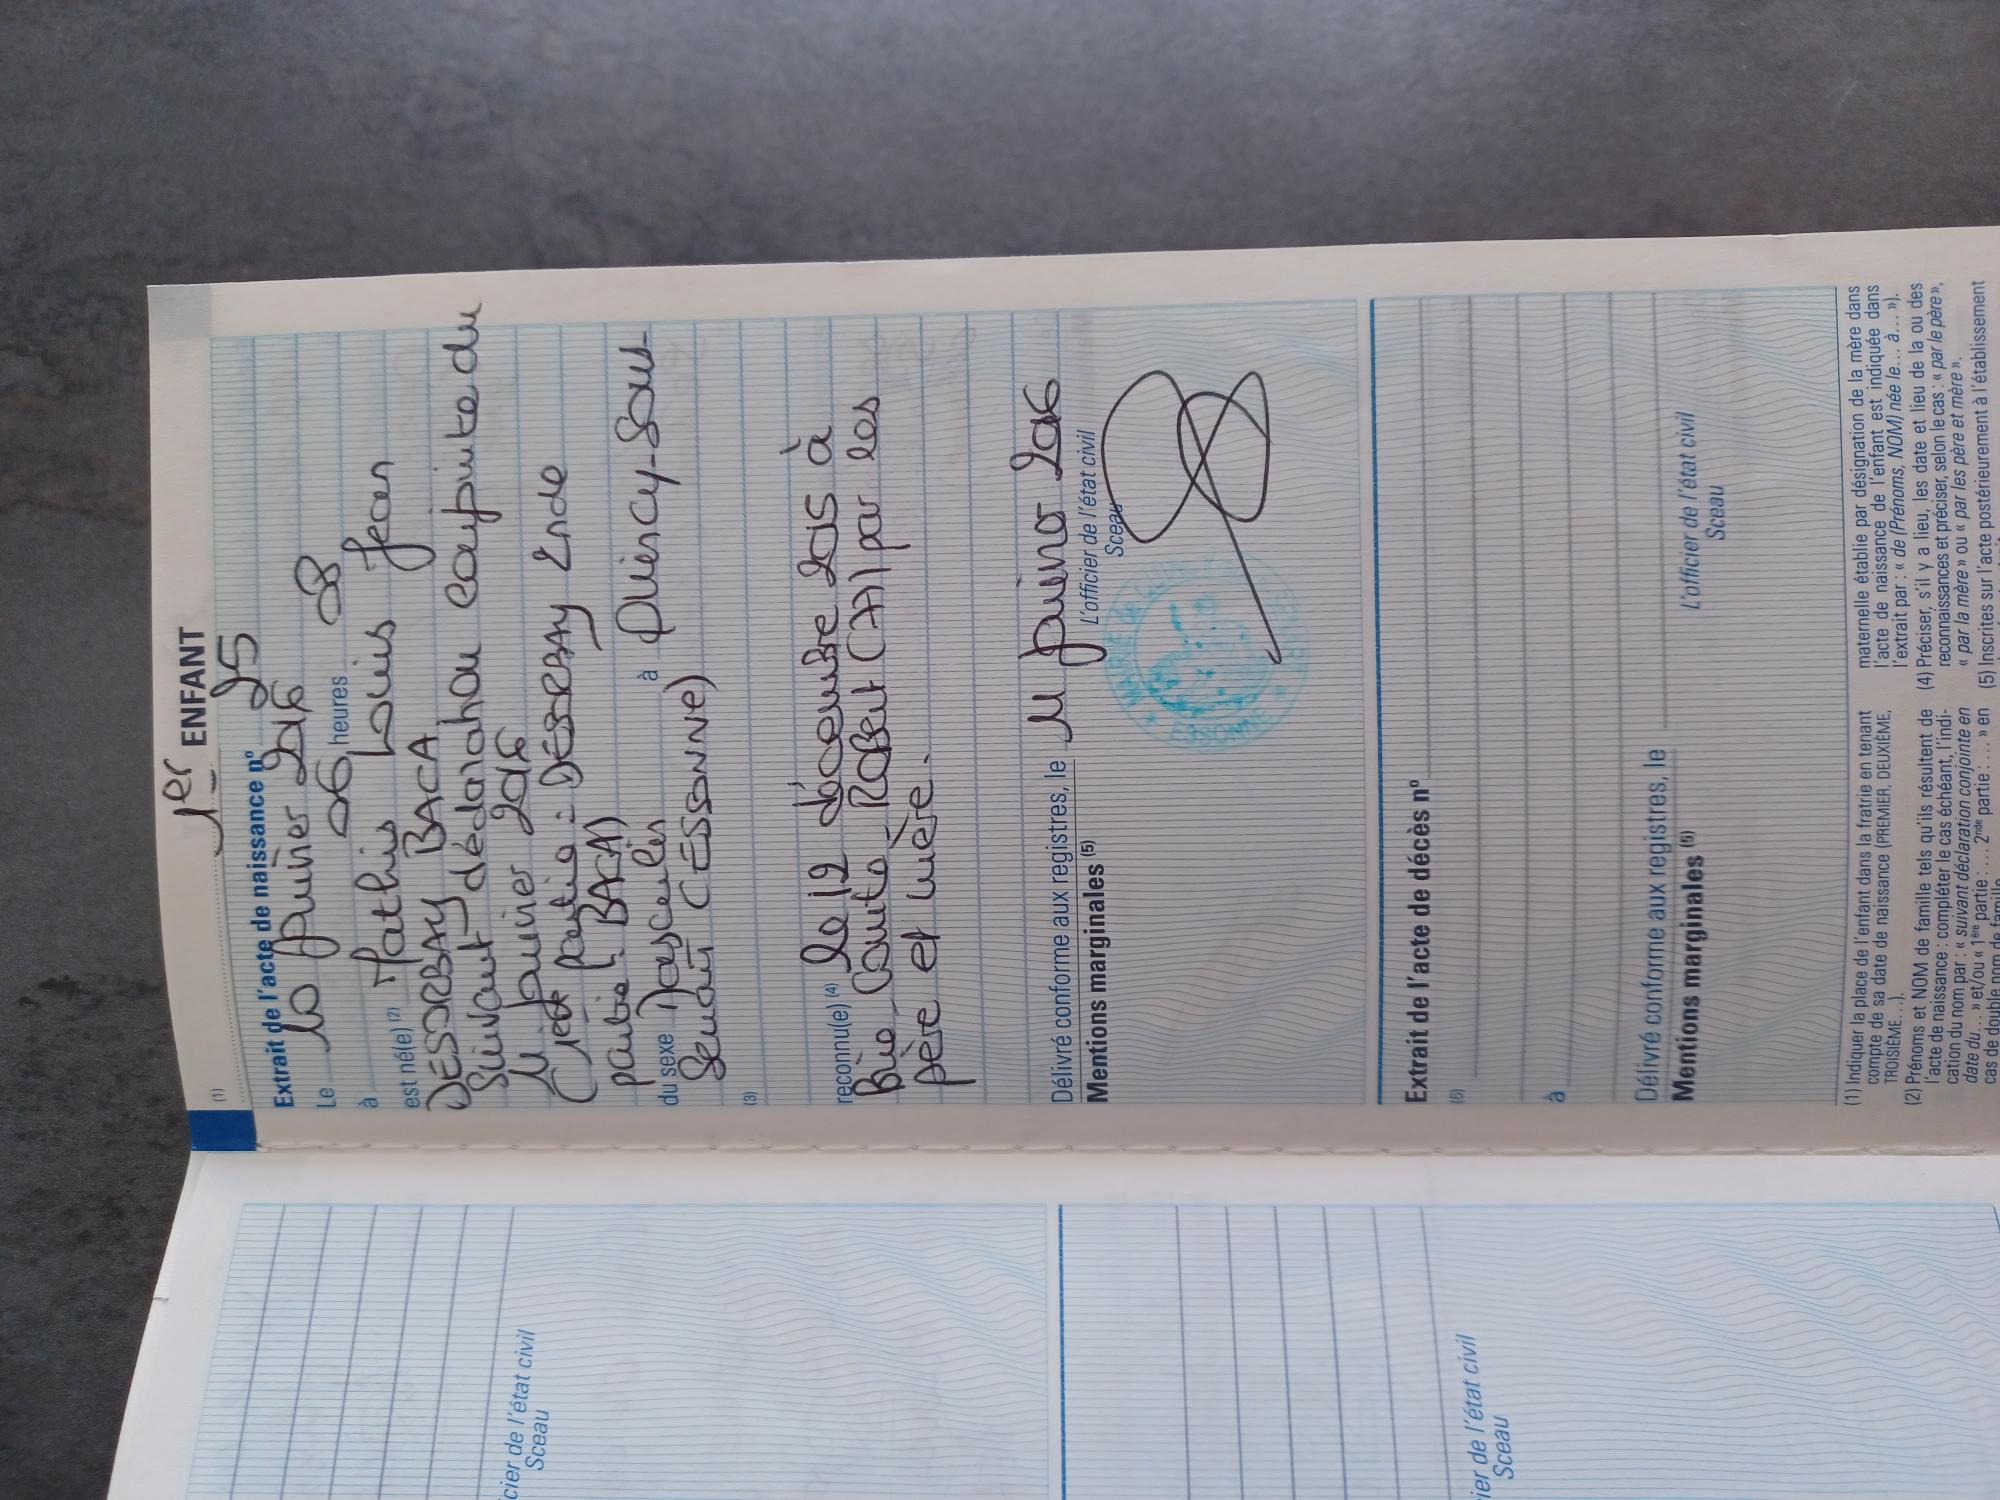 1er ENFANT
(1)
Extrait de l'acte de naissance n° 25
Le 10 janvier 2016
à 06 heures 08
est né(e) (2) Mathis Louis Jean
DESORBAY BACA
Suivant déclaration conjointe du
11 janvier 2016
(1ère partie : DESORBAY 2nde
partie : BACA)
du sexe Masculin à Quincy-Sous-
Sénart (ESSONNE)
(3)
reconnu(e) (4) le 12 décembre 2015 à
Brie-Comte-Robert (77) par les
père et mère.
Délivré conforme aux registres, le 11 janvier 2016
Mentions marginales (5)
L'officier de l'état civil
Sceau
MAIRIE de
ESSONNE
Extrait de l'acte de décès n°
(6)
à
Délivré conforme aux registres, le
Mentions marginales (5)
L'officier de l'état civil
Sceau
(1) Indiquer la place de l'enfant dans la fratrie en tenant
compte de sa date de naissance (PREMIER, DEUXIÈME,
TROISIÈME…).
(2) Prénoms et NOM de famille tels qu'ils résultent de
l'acte de naissance : compléter le cas échéant, l'indi-
cation du nom par : « suivant déclaration conjointe en
date du… » et/ou « 1ère partie : … 2nde partie : … » en
cas de double nom de famille
maternelle établie par désignation de la mère dans
l'acte de naissance de l'enfant est indiquée dans
l'extrait par : « de (Prénoms, NOM) née le… à… »).
(4) Préciser, s'il y a lieu, les date et lieu de la ou des
reconnaissances et préciser, selon le cas : « par le père »,
« par la mère » ou « par les père et mère ».
(5) Inscrites sur l'acte postérieurement à l'établissement
cier de l'état civil
Sceau
ier de l'état civil
Sceau